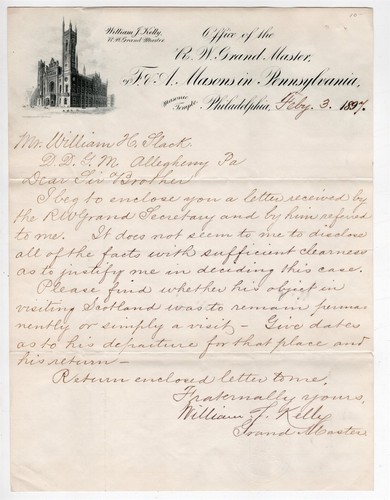 William J. Kelly,
R.W. Grand Master.
Office of the
R. W. Grand Master,
of F. & A. Masons in Pennsylvania,
Masonic Temple, Philadelphia, Feby. 3. 1897.
Mr. William H. Slack
D. D. G. M. Allegheny Pa
Dear Sir & Brother
I beg to enclose you a letter received by
the RW Grand Secretary and by him referred
to me. It does not seem to me to disclose
all of the facts with sufficient clearness
as to justify me in deciding this case.
Please find whether his object in
visiting Scotland was to remain perma
nently or simply a visit - Give dates
as to his departure for that place and
his return -
Return enclosed letter to me,
Fraternally yours,
William J. Kelly
Grand Master